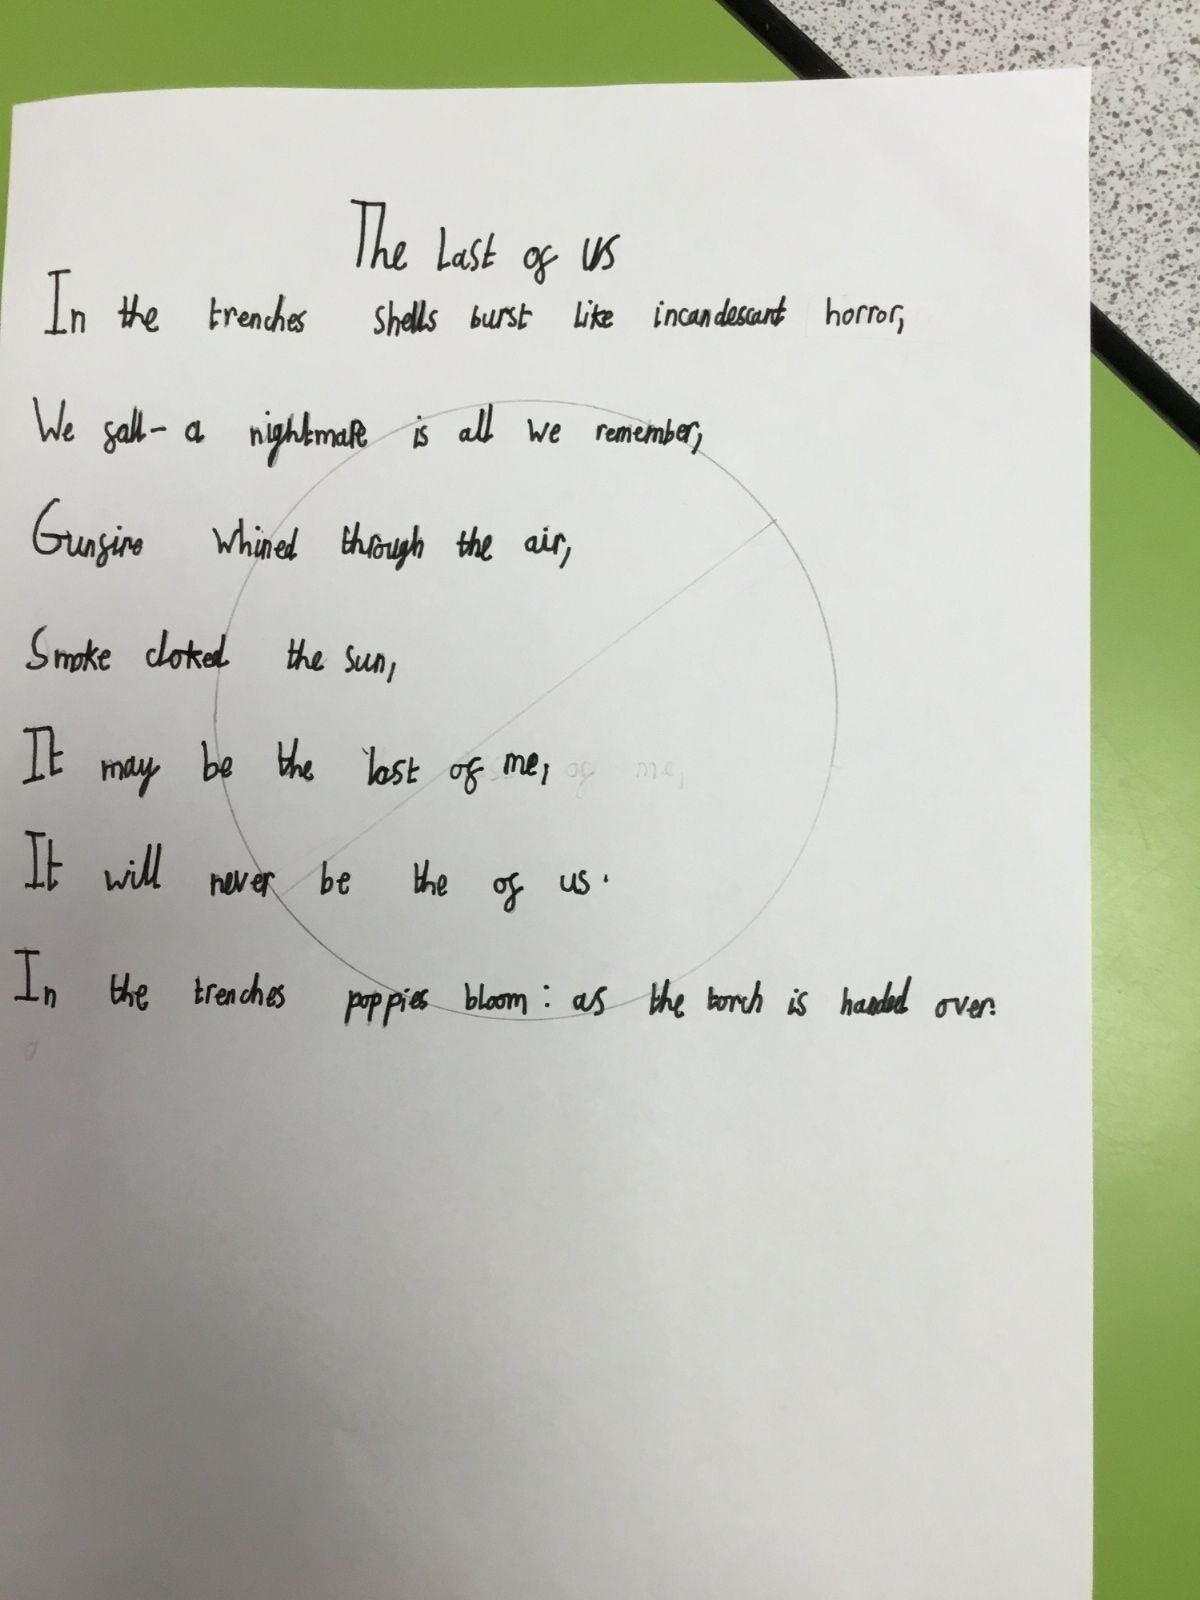 The Last of us
In the trenches shells burst like incandescant horror,
We fall- a nightmare is all we remember,
Gunfire whined through the air,
Smoke cloked the sun,
It may be the last of me,
It will never be the of us.
In the trenches poppies bloom: as the torch is handed over.